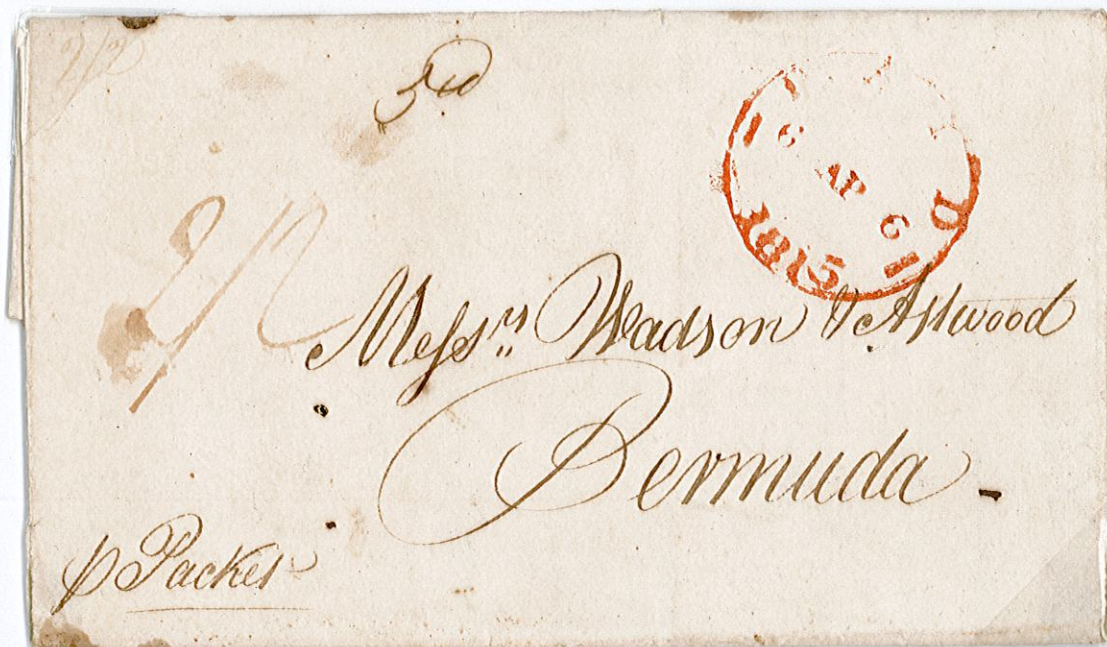 2/2
2/2
6 AP 6
1815
Messrs. Wadson & Attwood
Bermuda -
p Packet